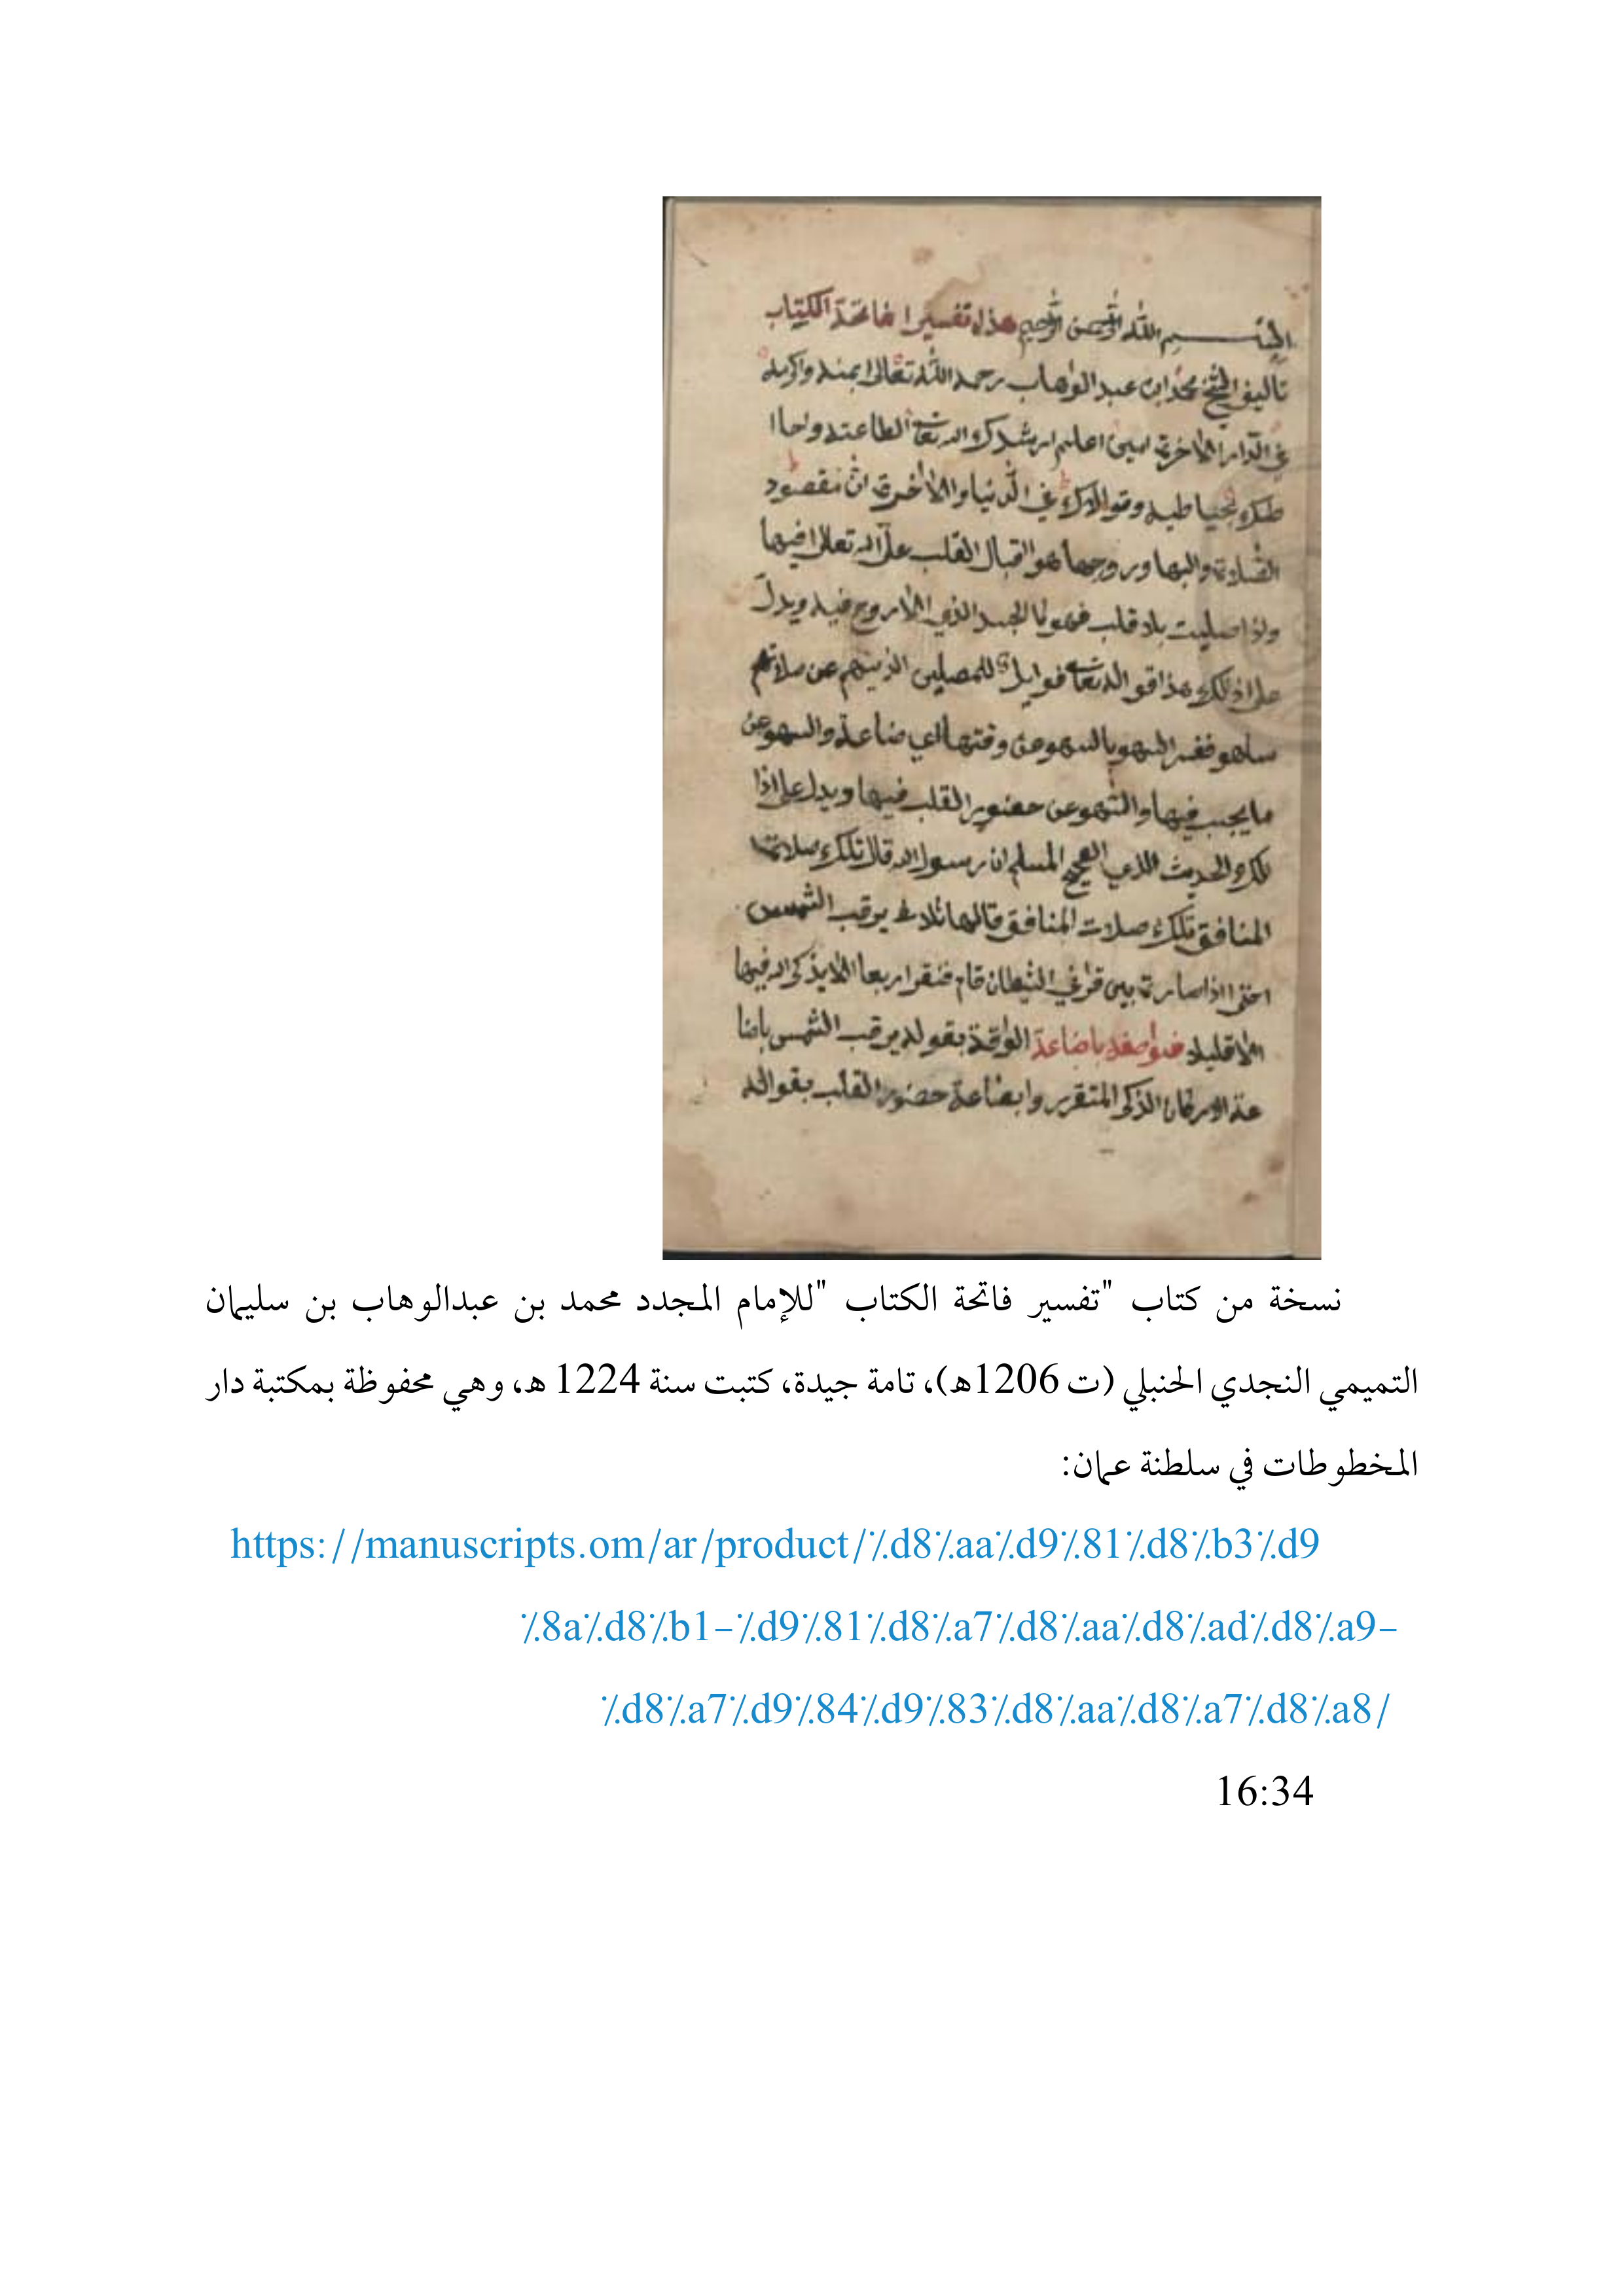 بسم الله الرحمن الرحيم هذه تفسير افاتحة الكتاب
تاليف الشيخ محمد ابن عبد الوهاب رحمه الله تعالى بمنه وكرمه
في الدار الاخرة امين اعلم ارشدك الله تعالى الطاعته واحاا
طك بحياطيه وتوالاك في الدنيا والاخرة ان مقصود
الصلاة والبها وروحها هو اقبال القلب على الله تعالى فيها
واذا صليت بلا قلب فهو كا الجسد الذي لاروح فيه ويدل
على اذلك هذا قو الله تعالى فوايل للمصلين الذينهم عن صلاتهم
ساهو ففسر السهو باالسهو عن وقتها اي ضاعة والسهو عن
ما يجب فيها والسهو عن حضور القلب فيها ويدل على اذا
لك الحديث الذي الصحيح المسلم ان رسول الله قال تلك صلات
المنافق تلك صلات المنافق قالها ثلاث يرقب الشمس
احتى اذا صارت بين قرني الشيطان قام فنقر اربعا لا يذكر الله فيها
الا قليلا فواصفه باضاعة الوقت بقوله يرقب الشمس باضا
عة الاركان الذكر المتقرر وابضاعة حضور القلب بقوالله
نسخة من كتاب "تفسير فاتحة الكتاب "للإمام المجدد محمد بن عبدالوهاب بن سليمان
التميمي النجدي الحنبلي (ت 1206هـ)، تامة جيدة، كتبت سنة 1224 هـ، وهي محفوظة بمكتبة دار
المخطوطات في سلطنة عمان:
https://manuscripts.om/ar/product/%d8%aa%d9%81%d8%b3%d9
%8a%d8%b1-%d9%81%d8%a7%d8%aa%d8%ad%d8%a9-
%d8%a7%d9%84%d9%83%d8%aa%d8%a7%d8%a8/
16:34